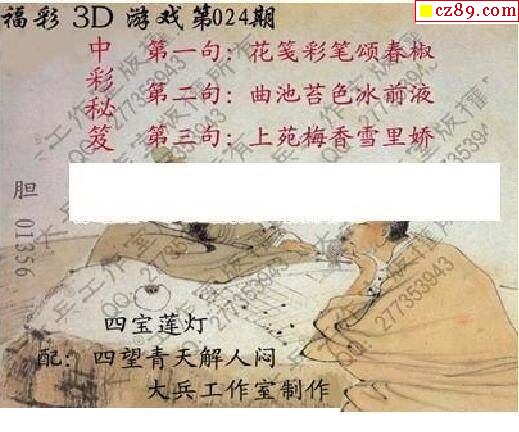 cz89.com
福彩 3D 游戏第024期
中彩秘笈
第一句：花笺彩笔颂春椒
第二句：曲池苔色冰前液
第三句：上苑梅香雪里娇
胆 01356
大兵工作室版权所有
QQ：277353943
四宝莲灯
配：四望青天解人闷
大兵工作室制作